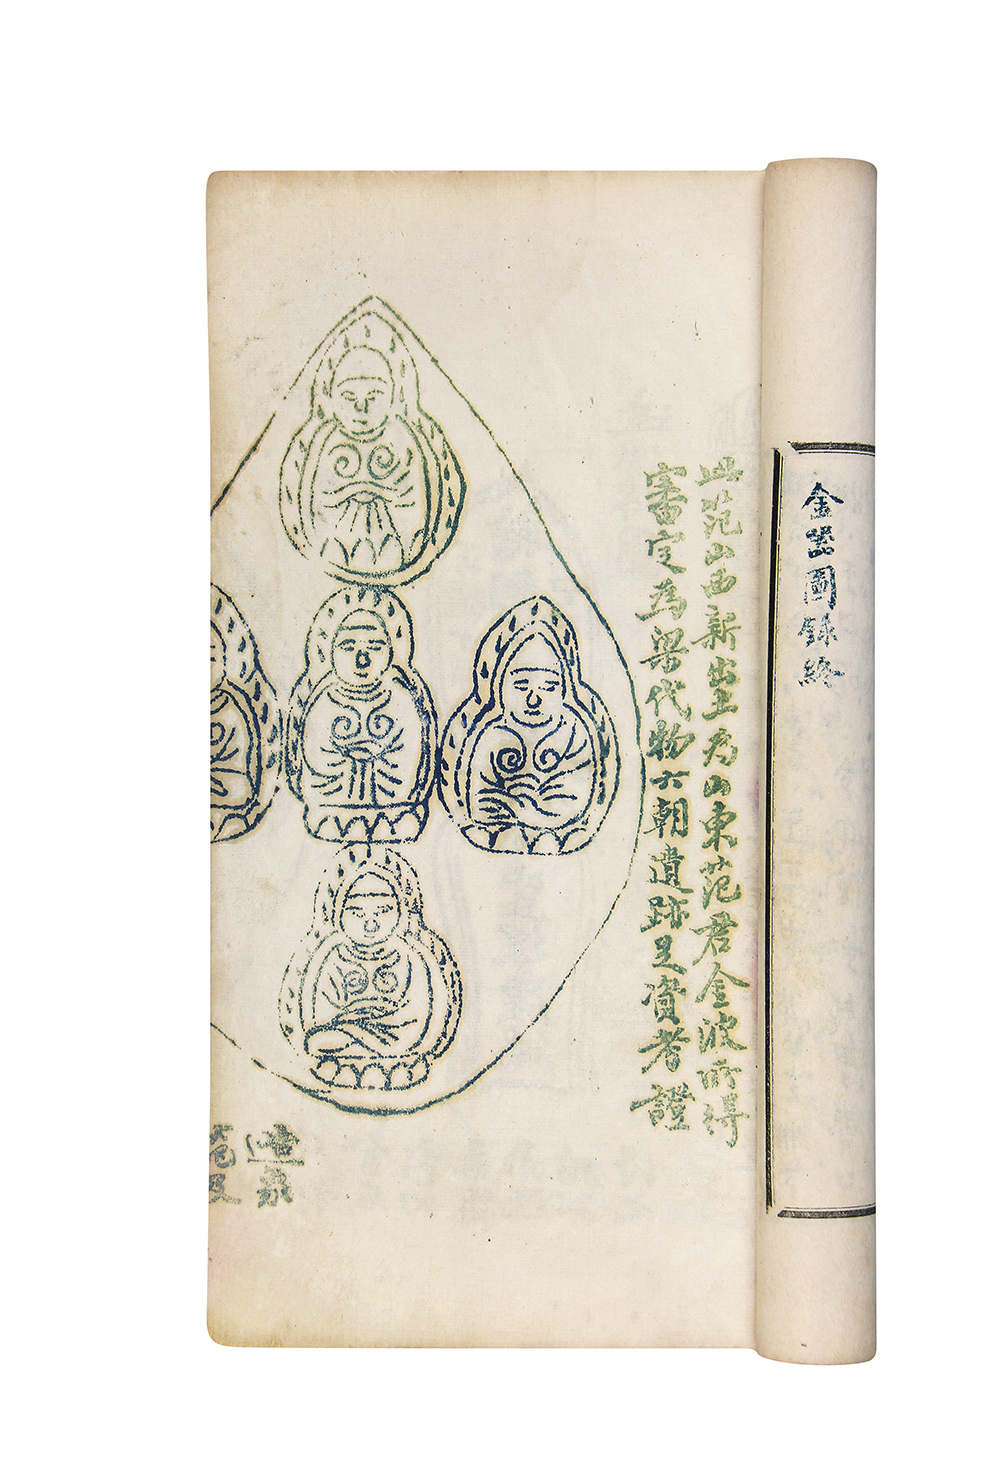 金器圖錄終
此范山西新出土為山東范君金波所得
審定為梁代物六朝遺跡足資考證